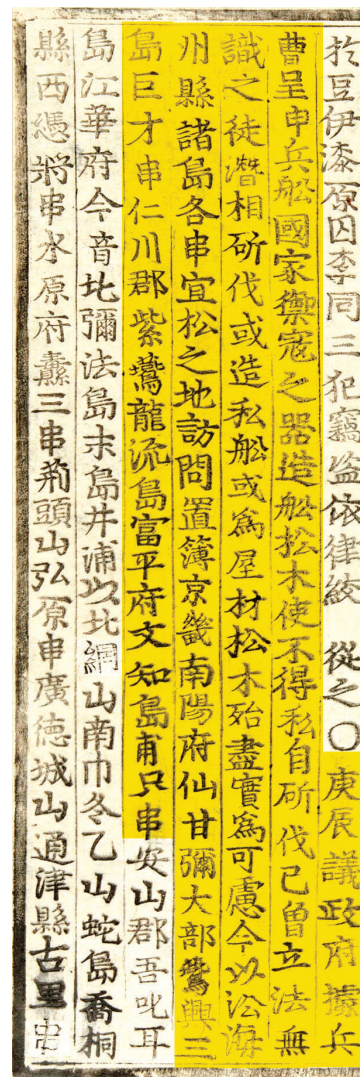 扵豆伊漆原囚李同三犯竊盜依律絞 從之〇庚辰議政府據兵
曹呈申兵船國家禦寇之器造船松木使不得私自斫伐已曾立法無
識之徒潛相斫伐或造私船或爲屋材松木殆盡實爲可慮今以沿海
州縣諸島各串宜松之地訪問置簿京畿南陽府仙甘彌大部鷰興三
島巨才串仁川郡紫鷰龍流島富平府文知島甫只串安山郡吾叱耳
島江華府今音北彌法島末島井浦以北網山南巾冬乙山蛇島喬桐
縣西憑將串水原府三串荊頭山弘原串廣德城山通津縣古里串